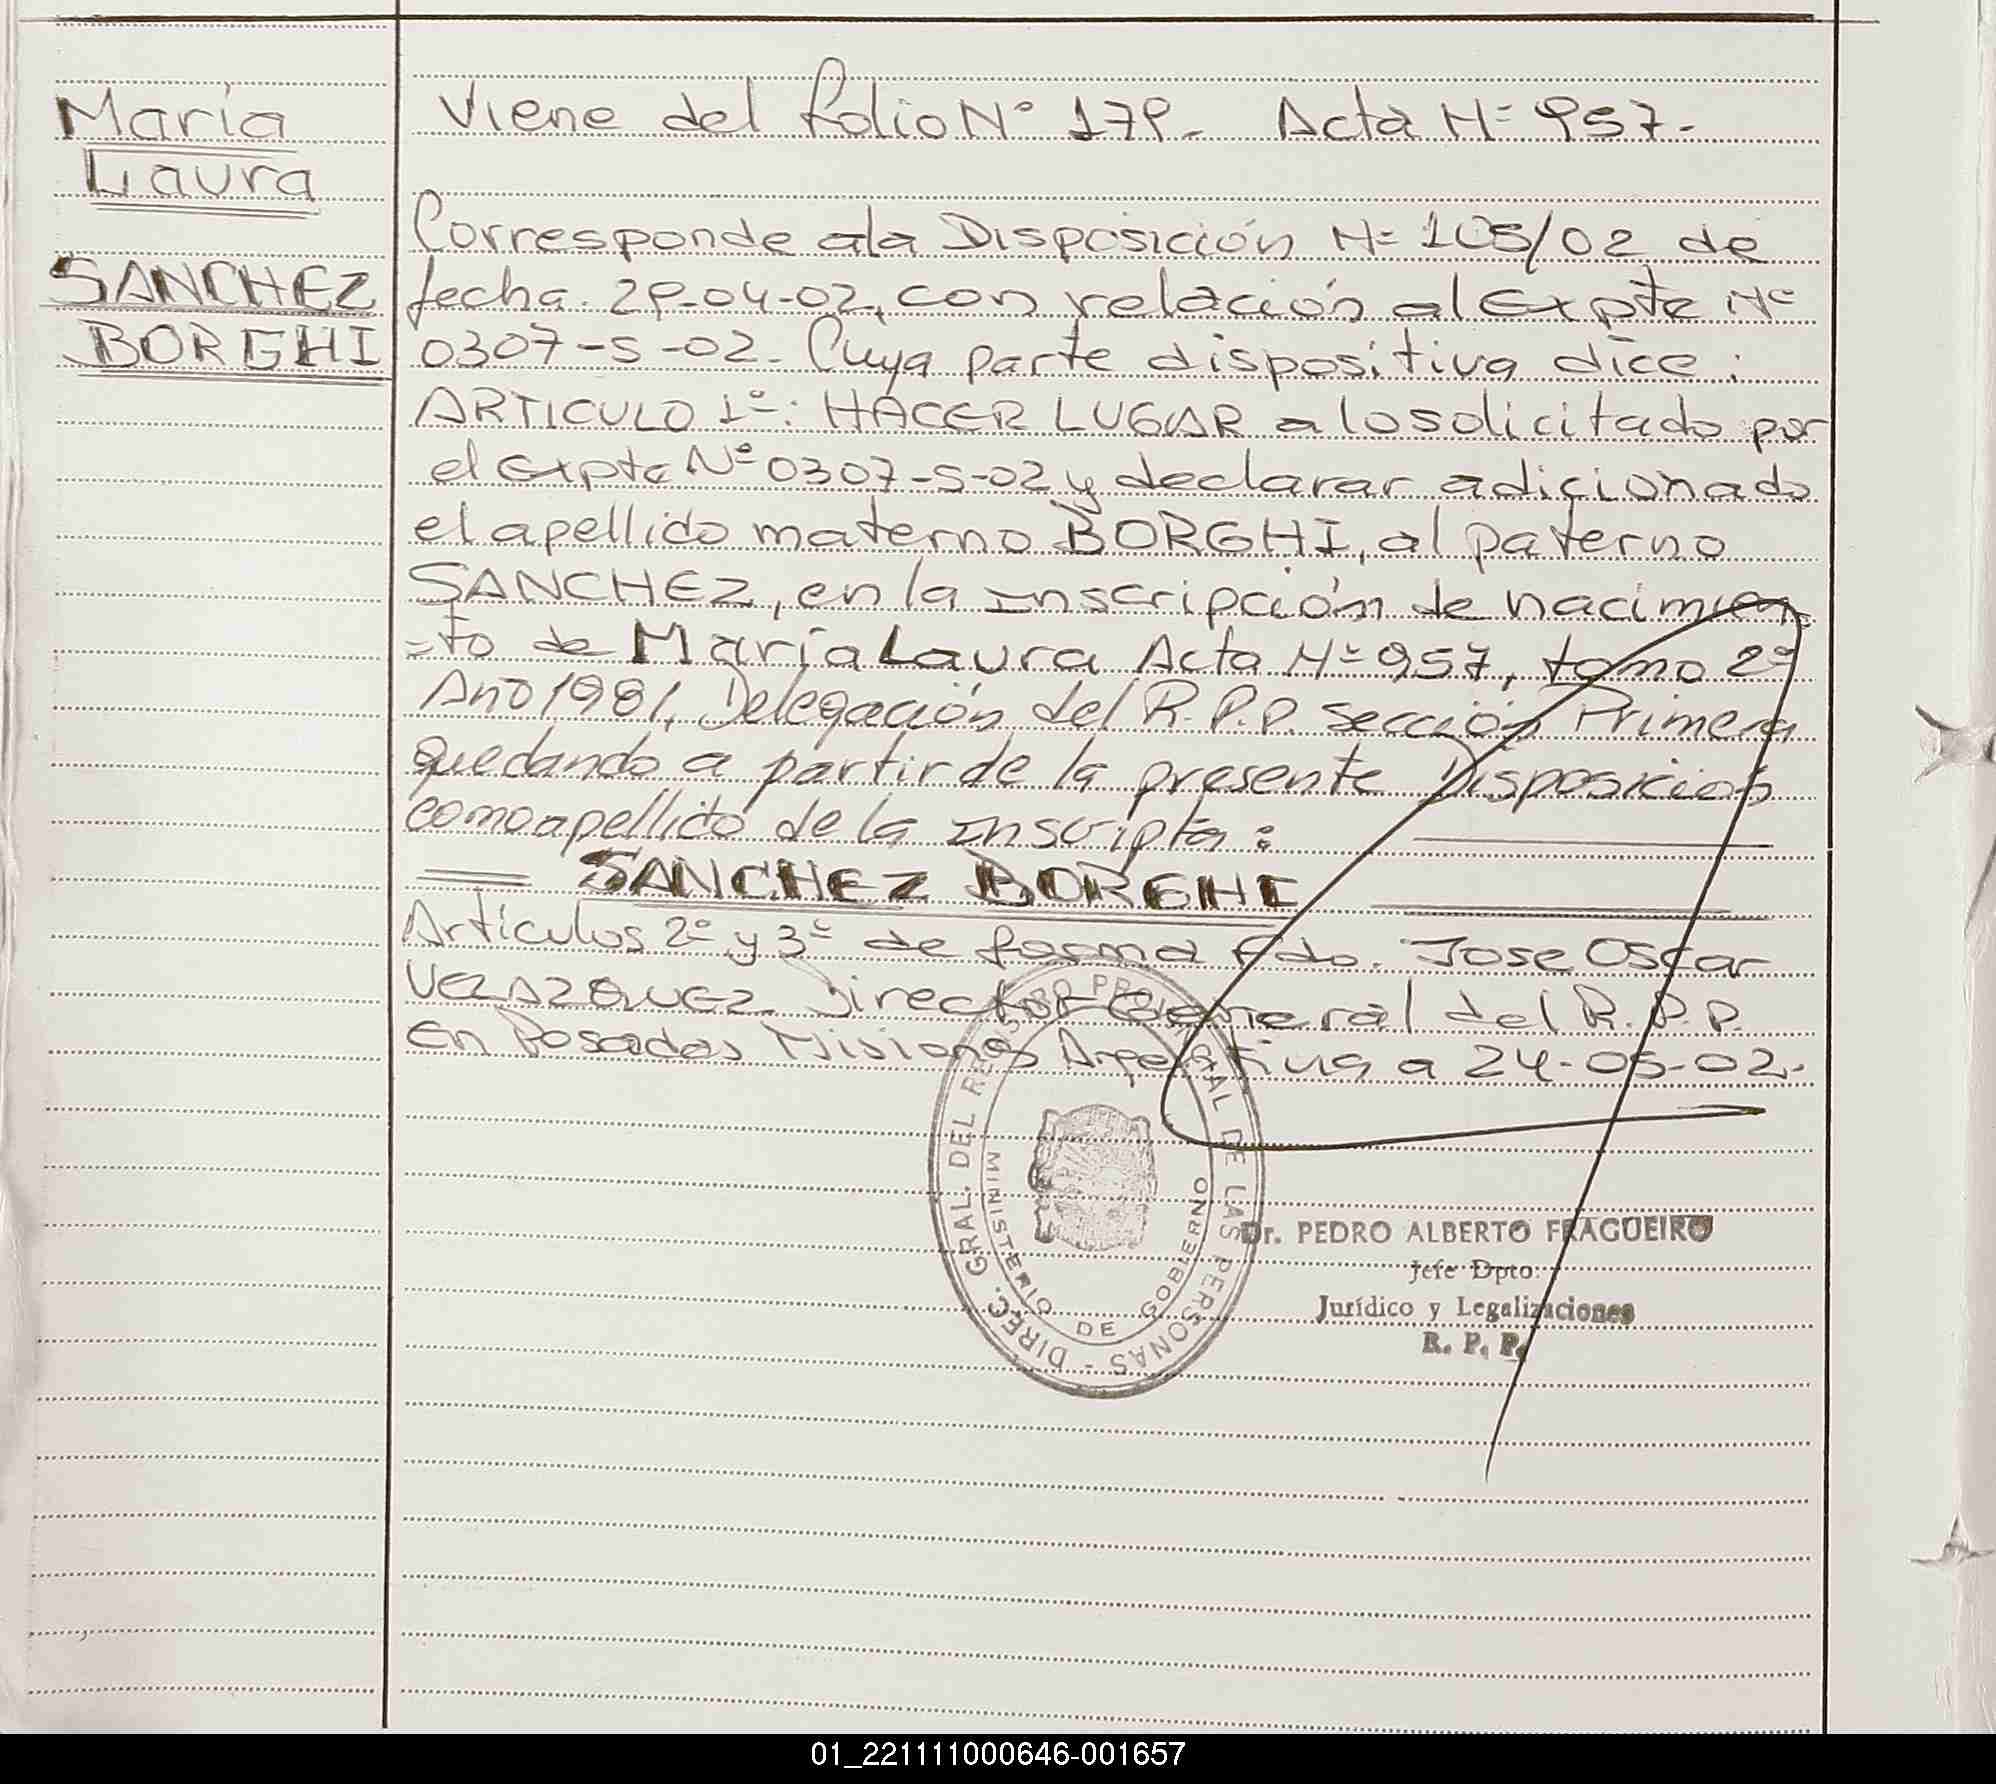 María
Laura
SANCHEZ
BORGHI
Viene del folio N° 179. Acta N° 957.
Corresponde a la Disposición N° 105/02 de
fecha. 29-04-02, con relación al Expte N°
0307-S-02. Cuya parte dispositiva dice:
ARTICULO 1°: HACER LUGAR a lo solicitado por
el Expte N° 0307-S-02 y declarar adicionado
el apellido materno BORGHI, al paterno
SANCHEZ, en la inscripción de nacimien
=to de María Laura Acta N° 957, tomo 2°
Año 1981, Delegación del R.P.P. sección Primera
quedando a partir de la presente Disposición
como apellido de la inscripta:
SANCHEZ BORGHI
Artículos 2° y 3° de forma Fdo. Jose Oscar
VELAZQUEZ. Director General del R.P.P.
En Posadas Misiones Argentina a 24-05-02.
DIREC. GRAL. DEL REGISTRO PROVINCIAL DE LAS PERSONAS -
MINISTERIO DE GOBIERNO
Dr. PEDRO ALBERTO FRAGUEIRO
Jefe Dpto.
Jurídico y Legalizaciones
R. P. P.
01_221111000646-001657